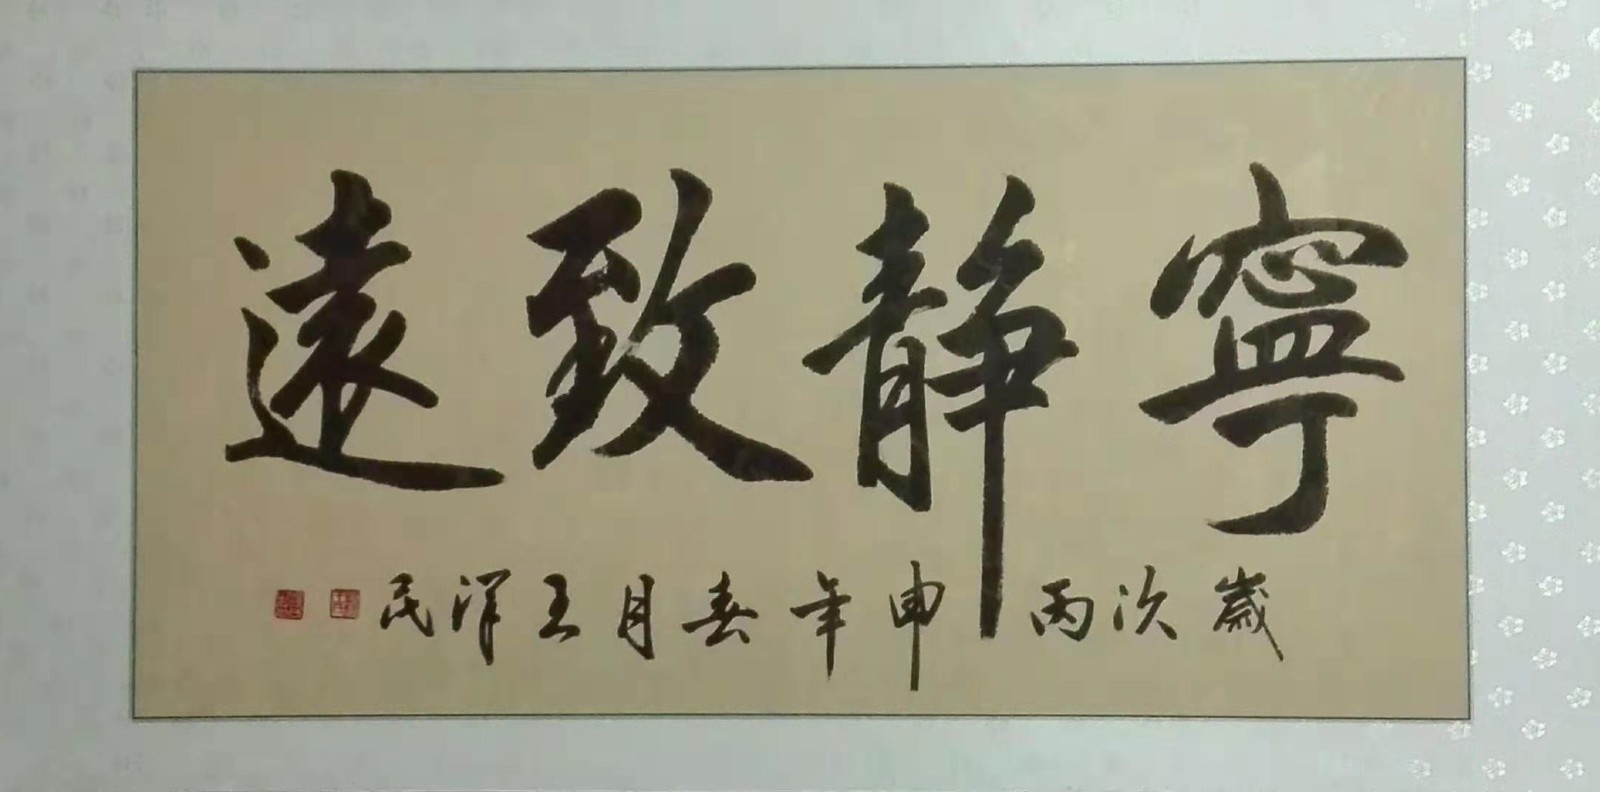 寧靜致遠
歲次丙申年春月王洋民